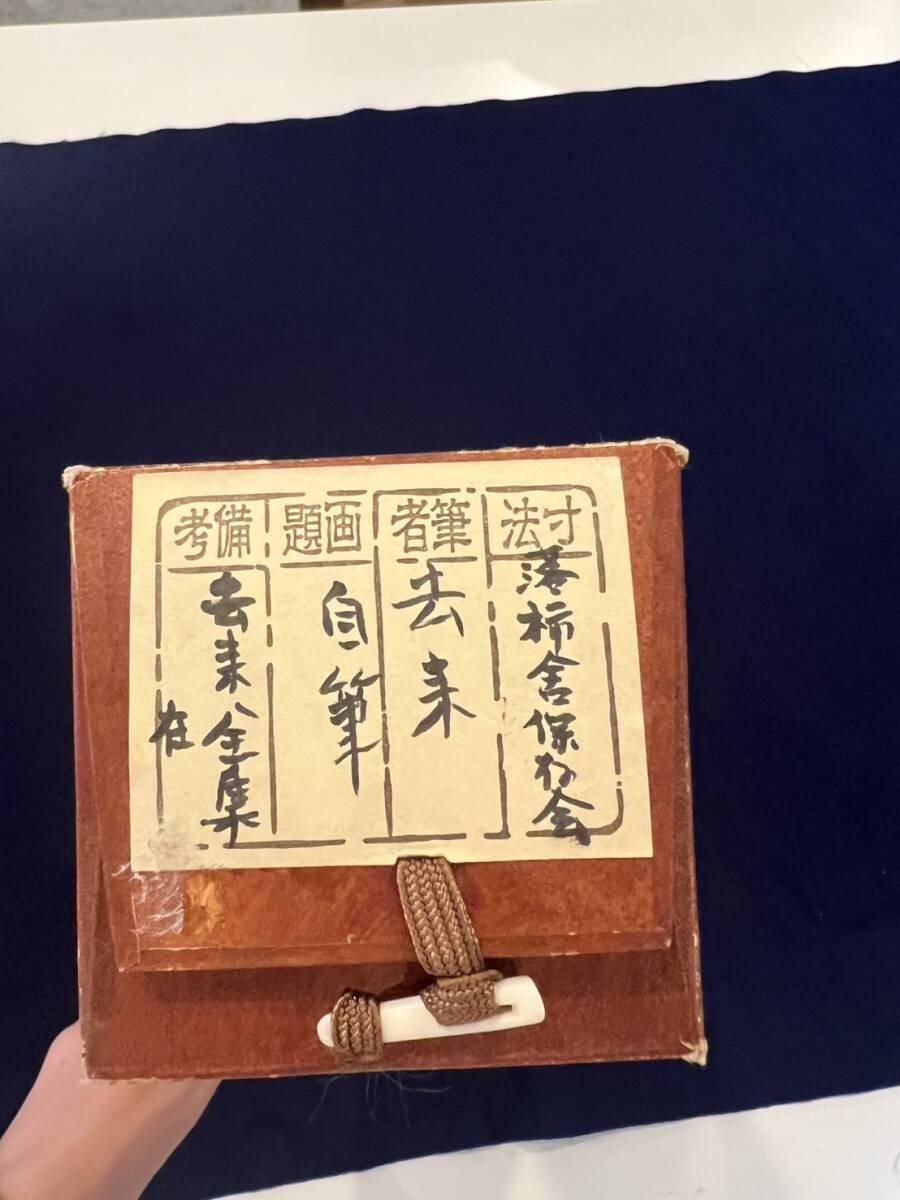 寸法
落柿舎保存会
筆者
去来
画題
自筆
備考
去来全集
在